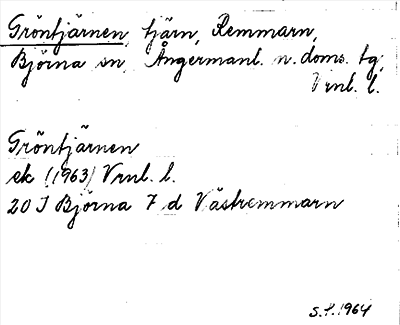 Gröntjärnen, tjärn, Remmarn,
Björna sn, Ångermanl. n. doms. tg,
Vrnl. l.
Gröntjärnen
ek (1963) Vrnl. l.
20 J Björna 7 d Västremmarn
S.L. 1964